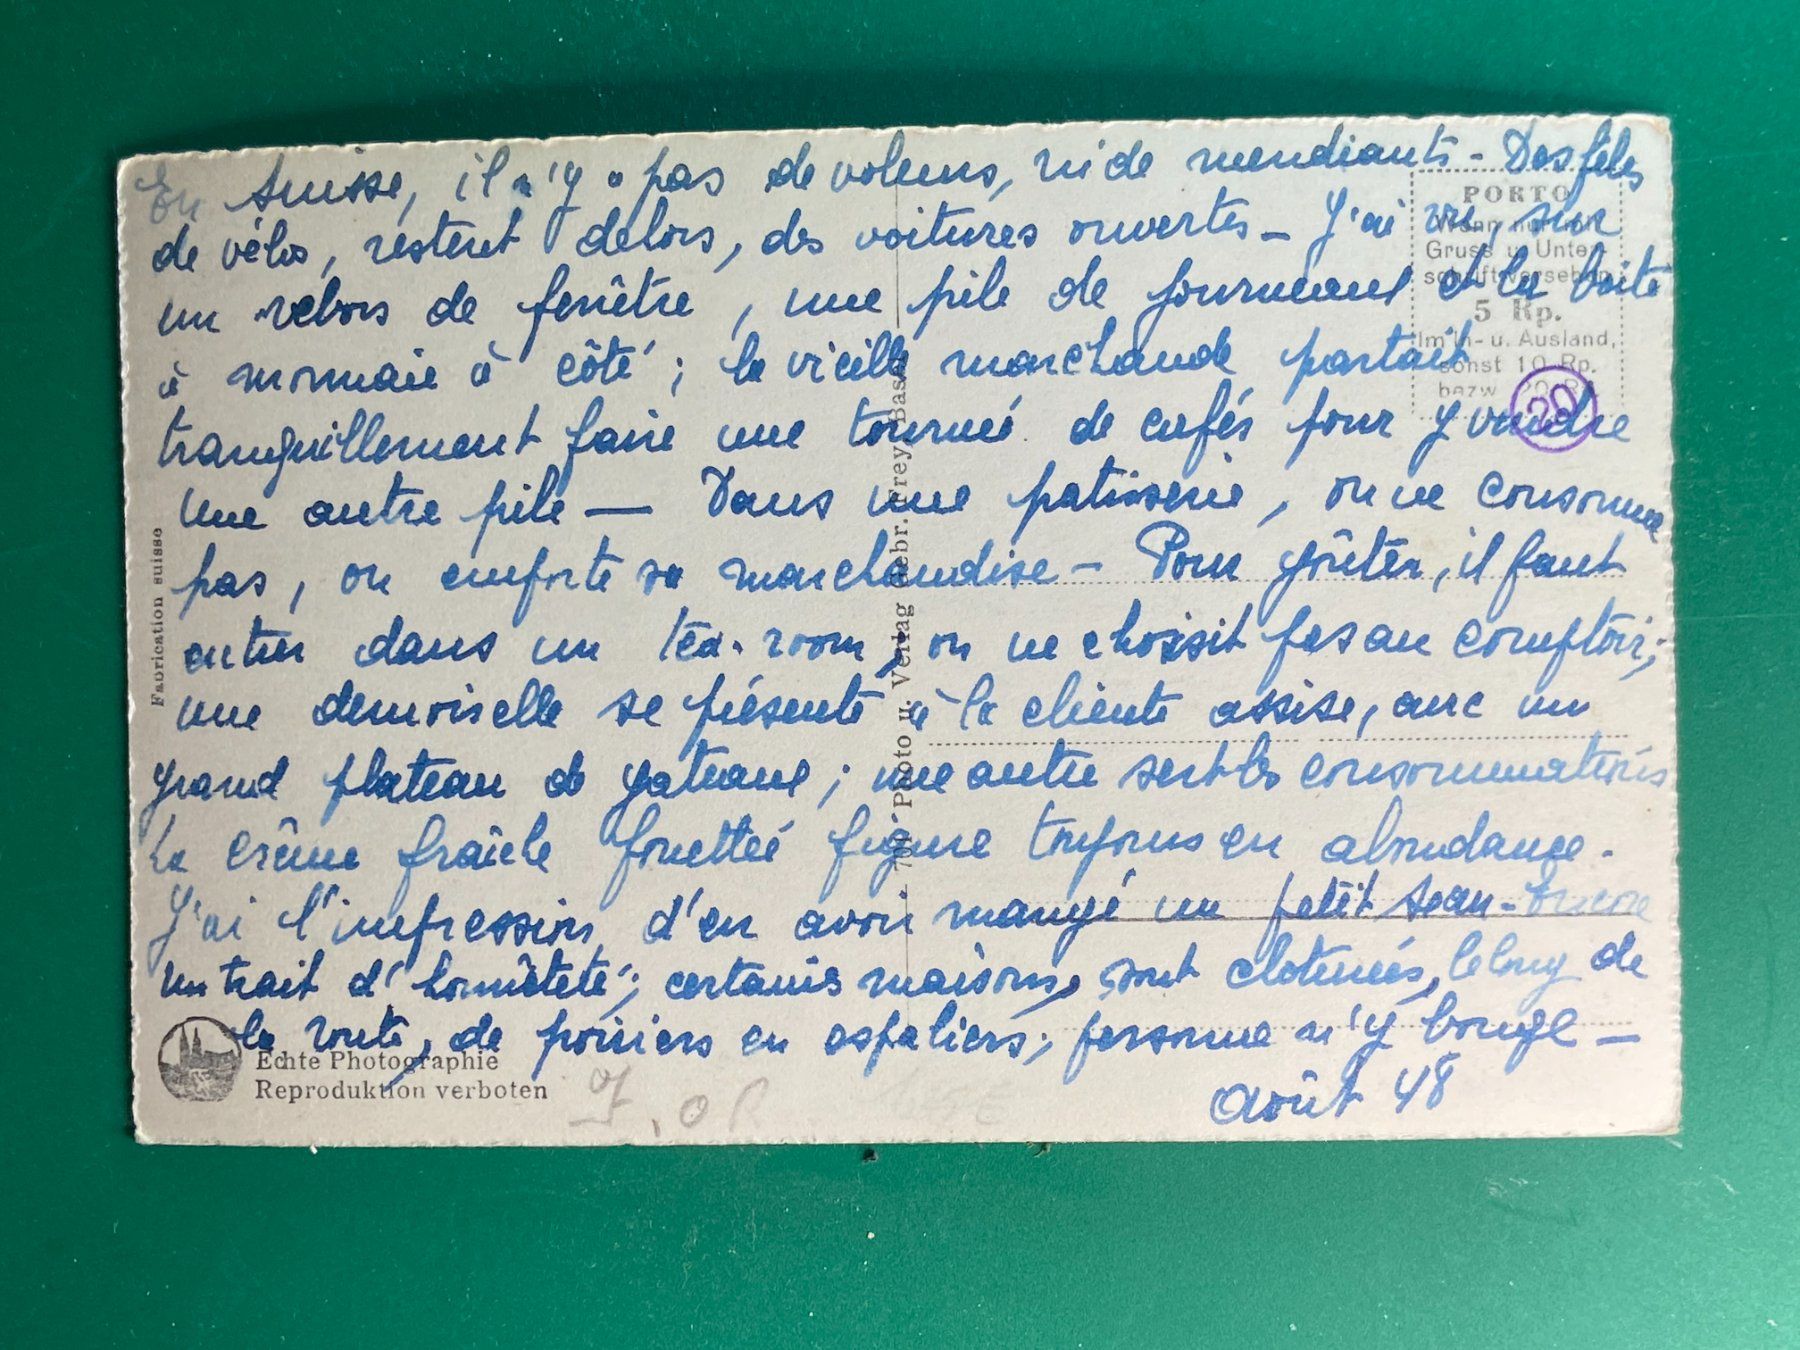 En Suisse, il n'y a pas de voleurs, ni de mendiants - Des files
de vélos, restent dehors, des voitures ouvertes - J'ai vu, sur
un rebors de fenêtre, une pile de journeaux et la boite
à monnaie à côté ; la vieille marchande partait
tranquillement faire une tournée de cafés pour y vendre
une autre pile — Dans une patisserie, on ne consomme
pas, on emporte sa marchandise - Pour goûter, il faut
entrer dans un téa-room, on ne choisit pas au comptoir ;
une demoiselle se présente à la cliente assise, avec un
grand plateau de gateaux ; une autre sert les consommations
La crême fraîche fouettée figure toujours en abondance.
J'ai l'impression d'en avoir mangé un petit seau - Encore
un trait d'honnêteté ; certaines maisons, sont cloturées, le long de
la route, de poiriers en espaliers ; personne n'y bouge -
Août 48
PORTO
Wenn nur mit
Gruss u. Unter-
schrift versehen
5 Rp.
Im In- u. Ausland,
sonst 10 Rp.
bezw. 20 Rp.
20
Fabrication suisse
Photo u. Verlag Gebr. Frey, Basel
Echte Photographie
Reproduktion verboten